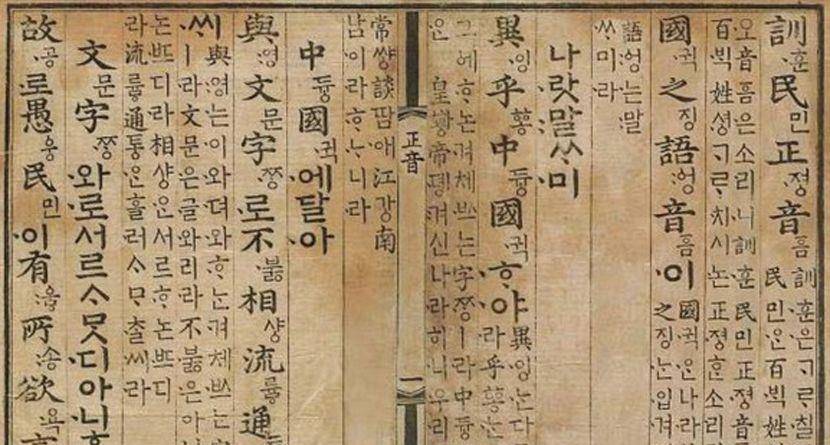 訓훈民민正졍音ᅙᅳᆷ
訓훈은ᄀᆞᄅᆞ칠
民민ᄋᆞᆫ百ᄇᆡᆨ姓
오音ᅙᅳᆷ은소리니訓훈民민正졍音
百ᄇᆡᆨ姓셩ᄀᆞᄅᆞ치시논正졍ᄒᆞᆫ소리
國귁之징語ᅌᅥᆼ音ᅙᅳᆷ이
國귁ᄋᆞᆫ나라
之징ᄂᆞᆫ입겨
語ᅌᅥᆼ는말
ᄊᆞ미라
나랏말ᄊᆞ미
異잉乎ᅘᅩᆼ中듀ᇰ國귁ᄒᆞ야
異잉ᄂᆞᆫ다
라乎ᅘᅩᆼᄂᆞᆫ
그ᅌᅦᄒᆞ논겨체ᄡᅳ는字ᄍᆞᆼㅣ라中듀ᇰ
은皇ᅘᅪᆼ帝뎽겨신나라히니우리
正音
一
常썅談땀애江강南
남이라ᄒᆞᄂᆞ니라
中듀ᇰ國귁에달아
與영文문字ᄍᆞᆼ로不부ᇙ相샤ᇰ流류ᇢ通
與영는이와뎌와ᄒᆞ는겨체ᄡᅳ는
ㅣ라文문은글와리라不부ᇙ은아
논ᄠᅳ디라相샤ᇰᄋᆞᆫ서르ᄒᆞ논ᄠᅳ디
라流류ᇢ通토ᇰᄋᆞᆫ흘러ᄉᆞᄆᆞᄎᆞᆯ씨라
文문字ᄍᆞᆼ와로서르ᄉᆞᄆᆞᆺ디아니
故공로愚ᅌᅮᆼ民민이有ᅌᅮᇢ所송欲욕